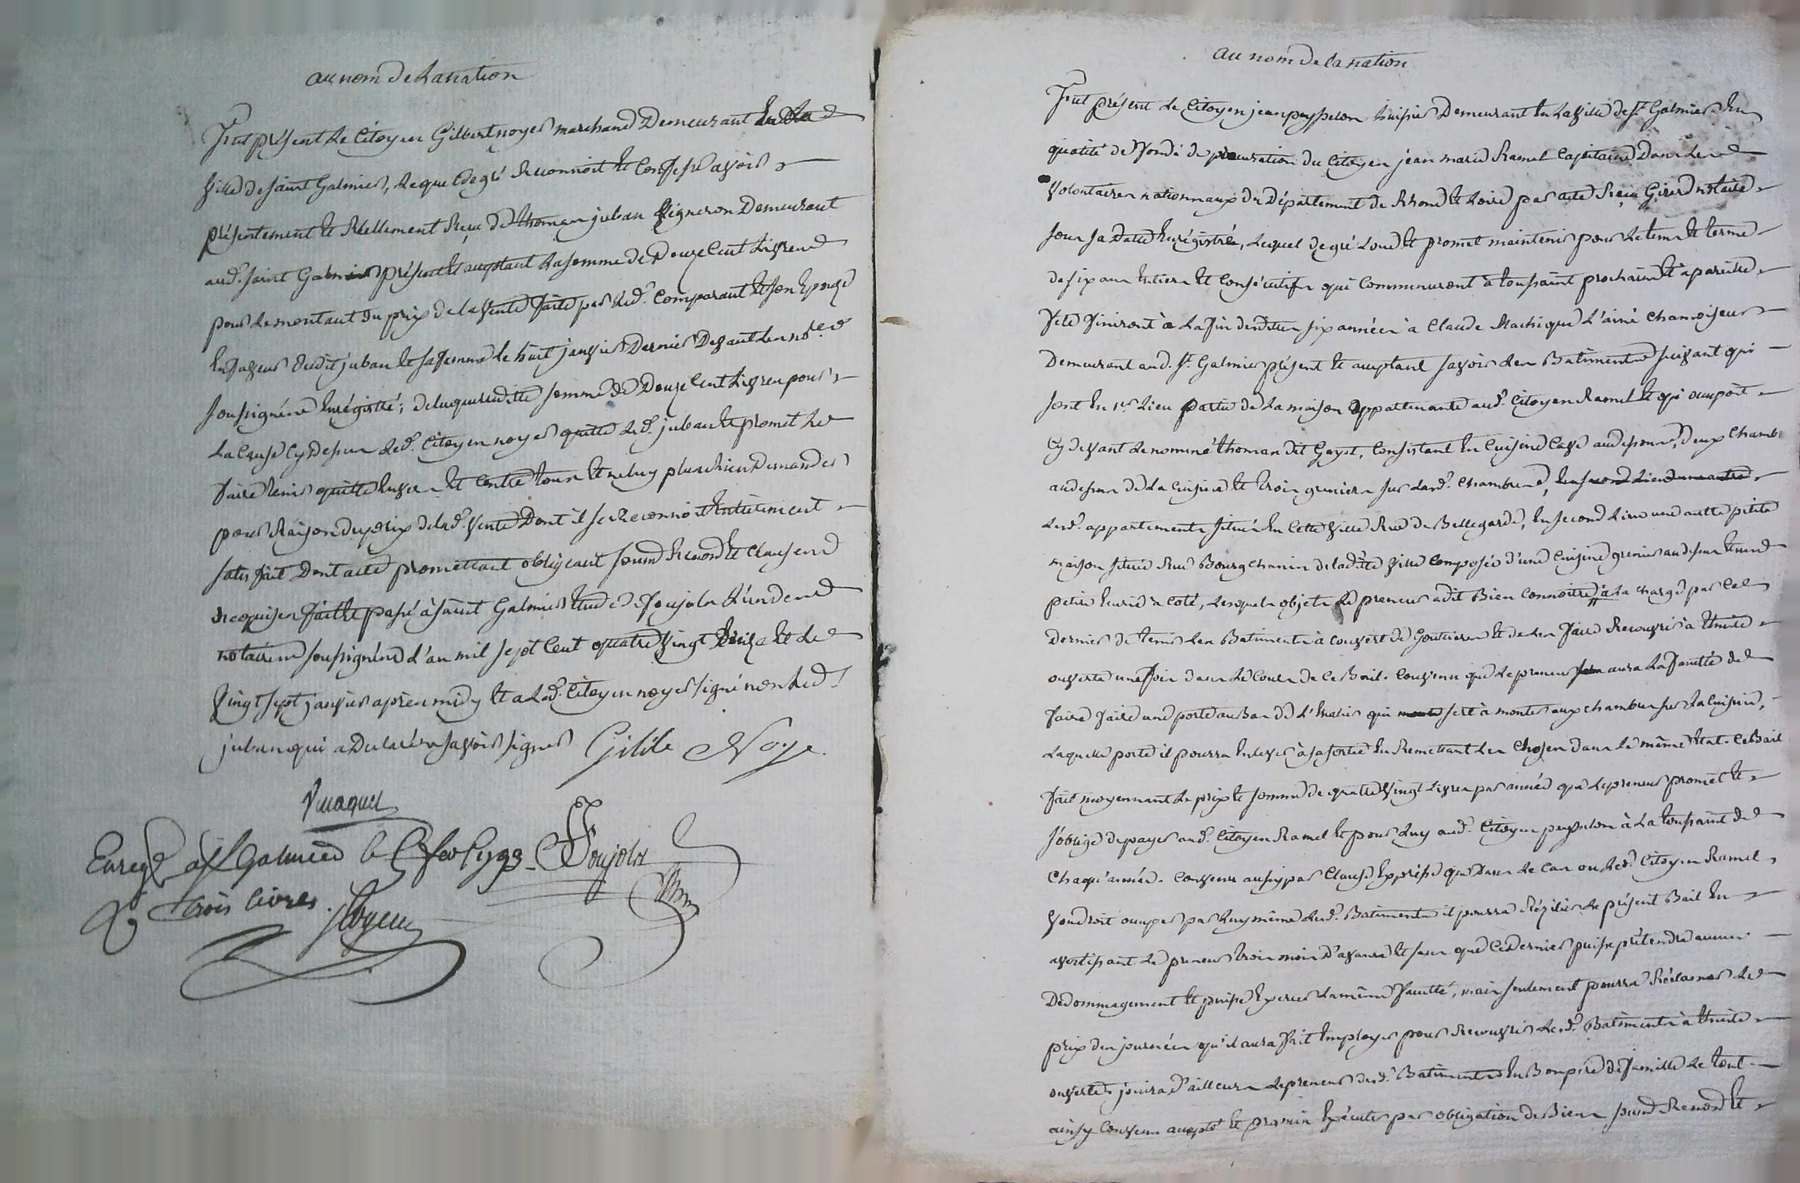 au nom de la nation
Fut présent le Citoyen Gilbert noyer marchand Demeurant en la
ville de saint Galmier, lequel de gré Reconnoit et Confesse avoir
présentement et Réellement Reçu de thomas juban vigneron Demeurant
aud. saint Galmier présent et acceptant la somme de Douze Cent livres
pour le montant du prix de la vente faite par led. Comparant et son Epouse
En faveur dudit juban et sa femme le huit janvier Dernier Devant les nores
soussignés Enrégistré; de laquelle ditte somme de Douze Cent livres pour
la Cause Cy Dessus led. Citoyen noyer quitte led. juban et promet le
faire tenir quitte Envers et Contre tous et ne luy plus Rien Demander
pour Raison du prix de lad. vente Dont il se Reconnoit Entierement
satisfait Dont acte promettant obligeant soumis Renonce et Clauses
Requises fait et passé à saint Galmier Etude de Foujols l'un des
notaires soussignés l'an mil sept Cent quatre vingt treize et le
vingt sept janvier après midy et a led. Citoyen noyer signé non led.
juban qui a Déclaré ne savoir signer Gilile Noye
Enregé à St Galmier le 6 fev 1793 Foujols
R trois livres.
au nom de la nation
Fut présent le Citoyen jean peysselon huissier Demeurant En la ville de St Galmier En
qualité de fondé de procuration du Citoyen jean marie Ramel Capitaine Dans les
volontaires nationnaux du Département de Rhone et Loire par acte Reçu Girerd notaire
sous sa Datte Enrégistrée, Lequel de gré Loue et promet maintenir pour le tems et terme
de six ans Entiers et Consécutifs qui Commenceront à toussaint prochain et à pareille
fête finiront à la fin desdittes six années à Claude l'ainé chamoiseur
Demeurant aud. St Galmier présent et acceptant savoir les Batiments suivant qui
sont En 1er Lieu partie de la maison appartenante aud. Citoyen Ramel et qu'occupoit
Cy devant le nommé thomas dit Gayet, Consistant En Cuisine Cave au dessous, Deux Chamb
au dessus de la Cuisine et trois greniers sur lesd. Chambres,
Lesd. appartements situés En Cette ville Rue de Bellegarde, En second Lieu une autre petite
maison située Rue Bourgchanin de laditte ville Composée d'une Cuisine grenier au dessus et une
petite Ecurie à Coté, Lesquels objets le preneur a dit Bien Connoitre, à la charge par Ce
Dernier de tenir les Batiments à Couvert de Gouttieres et de les faire Recouvrir à thuile
ouverte une fois dans le Cours de Ce Bail. Convenu que le preneur aura la faculté de
faire faire une porte au Bas de L' qui sert à monter aux chambres sur la Cuisine,
Laquelle porte il pourra Enlever à sa sortie En Remettant les Choses dans le même Etat. Ce Bail
fait moyennant le prix et somme de quatre vingt Livres par année que le preneur promet et
s'oblige de payer aud. Citoyen Ramel et pour luy aud. Citoyen peysselon à la toussaint de
Chaqu'année. Convenu aussy par Clause Expresse que Dans le Cas ou led. Citoyen Ramel
voudroit occuper par luy même lesd. Batiments il pourra Résilier le présent Bail En
avertissant le preneur trois mois D'avance et sans que Ce Dernier puisse prétendre aucun
Dédommagement et puisse Exercer la même faculté, mais seulement pourra Réclamer le
prix des journées qu'il aura fait Employer pour Recouvrir lesd. Batiments à thuile
ouverte, jouira d'ailleurs le preneur desd. Batiments En Bon père de famille Le tout
ainsy Convenu accepté et promis Exécuter par obligation de Biens soumis Renonce et